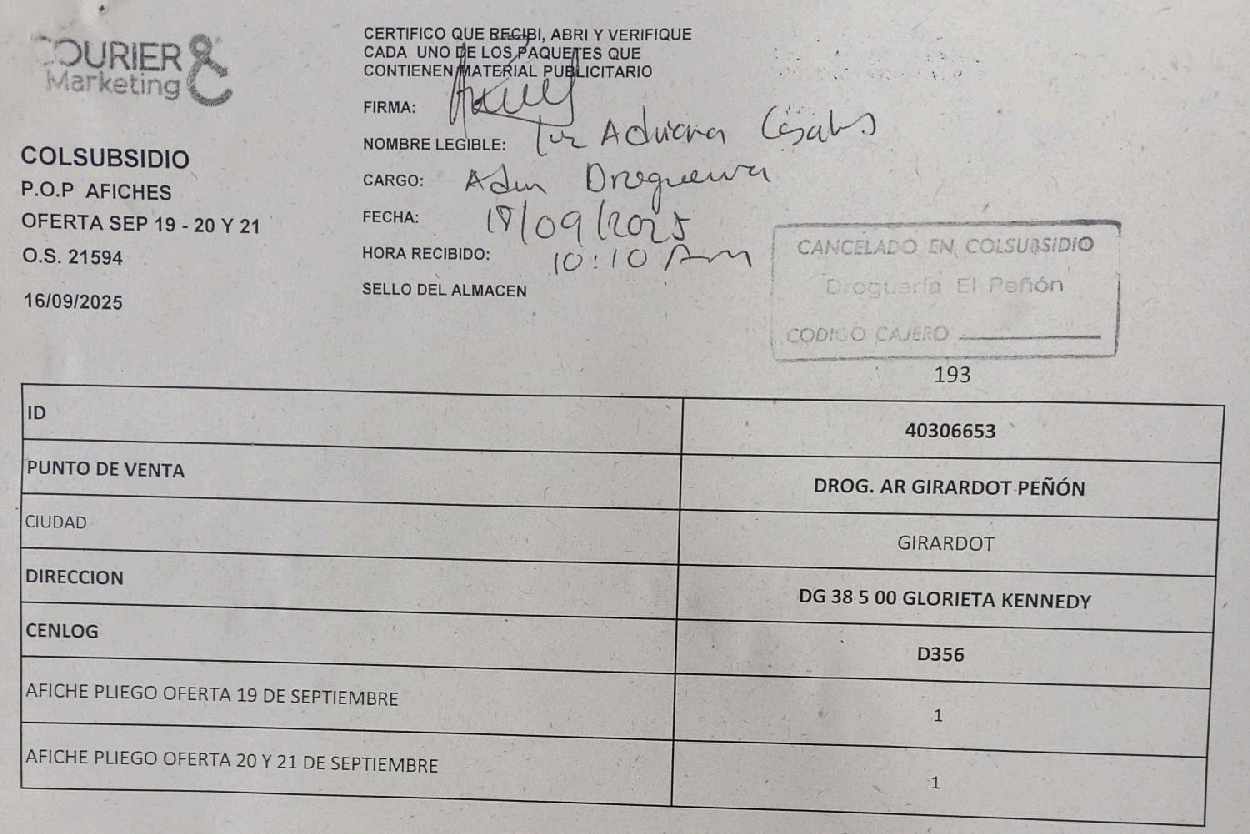 COURIER &
Marketing
COLSUBSIDIO
P.O.P AFICHES
OFERTA SEP 19 - 20 Y 21
O.S. 21594
16/09/2025
CERTIFICO QUE RECIBI, ABRI Y VERIFIQUE
CADA UNO DE LOS PAQUETES QUE
CONTIENEN MATERIAL PUBLICITARIO
FIRMA:
NOMBRE LEGIBLE: Luz Adriana
CARGO: Adm Drogueria
FECHA: 18/09/2025
HORA RECIBIDO: 10:10 Am
SELLO DEL ALMACEN
CANCELADO EN COLSUBSIDIO
Droguería El Peñón
CODIGO CAJERO
193
ID 40306653
PUNTO DE VENTA DROG. AR GIRARDOT PEÑÓN
CIUDAD GIRARDOT
DIRECCION DG 38 5 00 GLORIETA KENNEDY
CENLOG D356
AFICHE PLIEGO OFERTA 19 DE SEPTIEMBRE 1
AFICHE PLIEGO OFERTA 20 Y 21 DE SEPTIEMBRE 1